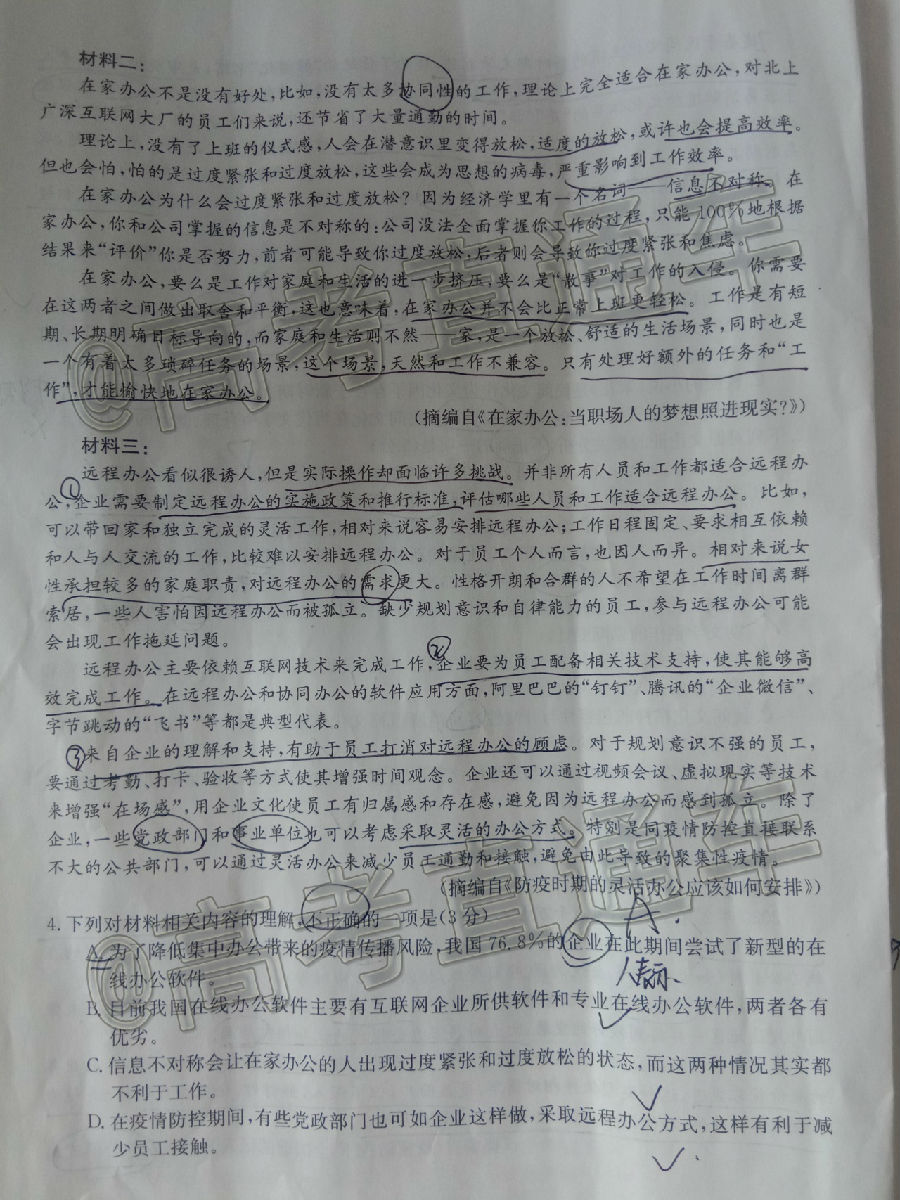 材料二:
在家办公不是没有好处,比如,没有太多协同性的工作,理论上完全适合在家办公,对北上
广深互联网大厂的员工们来说,还节省了大量通勤的时间。
理论上,没有了上班的仪式感,人会在潜意识里变得放松,适度的放松,或许也会提高效率。
但也会怕,怕的是过度紧张和过度放松,这些会成为思想的病毒,严重影响到工作效率。
在家办公为什么会过度紧张和过度放松?因为经济学里有一个名词——信息不对称。在
家办公,你和公司掌握的信息是不对称的:公司没法全面掌握你工作的过程,只能100%地根据
结果来“评价”你是否努力,前者可能导致你过度放松;后者则会导致你过度紧张和焦虑。
在家办公,要么是工作对家庭和生活的进一步挤压,要么是“散事”对工作的入侵。你需要
在这两者之间做出取舍和平衡,这也意味着,在家办公并不会比正常上班更轻松。工作是有短
期、长期明确目标导向的,而家庭和生活则不然——家,是一个放松、舒适的生活场景,同时也是
一个有着太多琐碎任务的场景,这个场景,天然和工作不兼容。只有处理好额外的任务和“工
作”,才能愉快地在家办公。
(摘编自《在家办公:当职场人的梦想照进现实?》)
材料三:
远程办公看似很诱人,但是实际操作却面临许多挑战。并非所有人员和工作都适合远程办
①公,企业需要制定远程办公的实施政策和推行标准,评估哪些人员和工作适合远程办公。比如,
可以带回家和独立完成的灵活工作,相对来说容易安排远程办公;工作日程固定、要求相互依赖
和人与人交流的工作,比较难以安排远程办公。对于员工个人而言,也因人而异。相对来说女
性承担较多的家庭职责,对远程办公的需求更大。性格开朗和合群的人不希望在工作时间离群
索居,一些人害怕因远程办公而被孤立。缺少规划意识和自律能力的员工,参与远程办公可能
会出现工作拖延问题。
远程办公主要依赖互联网技术来完成工作,②企业要为员工配备相关技术支持,使其能够高
效完成工作。在远程办公和协同办公的软件应用方面,阿里巴巴的“钉钉”、腾讯的“企业微信”、
字节跳动的“飞书”等都是典型代表。
③来自企业的理解和支持,有助于员工打消对远程办公的顾虑。对于规划意识不强的员工,
要通过考勤、打卡、验收等方式使其增强时间观念。企业还可以通过视频会议、虚拟现实等技术
来增强“在场感”,用企业文化使员工有归属感和存在感,避免因为远程办公而感到孤立。除了
企业,一些党政部门和事业单位也可以考虑采取灵活的办公方式。特别是同疫情防控直接联系
不大的公共部门,可以通过灵活办公来减少员工通勤和接触,避免由此导致的聚集性疫情。
(摘编自《防疫时期的灵活办公应该如何安排》)
4.下列对材料相关内容的理解,不正确的一项是(3分) A.
A.为了降低集中办公带来的疫情传播风险,我国76.8%的企业在此期间尝试了新型的在
线办公软件。
B.目前我国在线办公软件主要有互联网企业所供软件和专业在线办公软件,两者各有
优劣。
C.信息不对称会让在家办公的人出现过度紧张和过度放松的状态,而这两种情况其实都
不利于工作。
D.在疫情防控期间,有些党政部门也可如企业这样做,采取远程办公方式,这样有利于减
少员工接触。
@高考直通车
@高考直通车